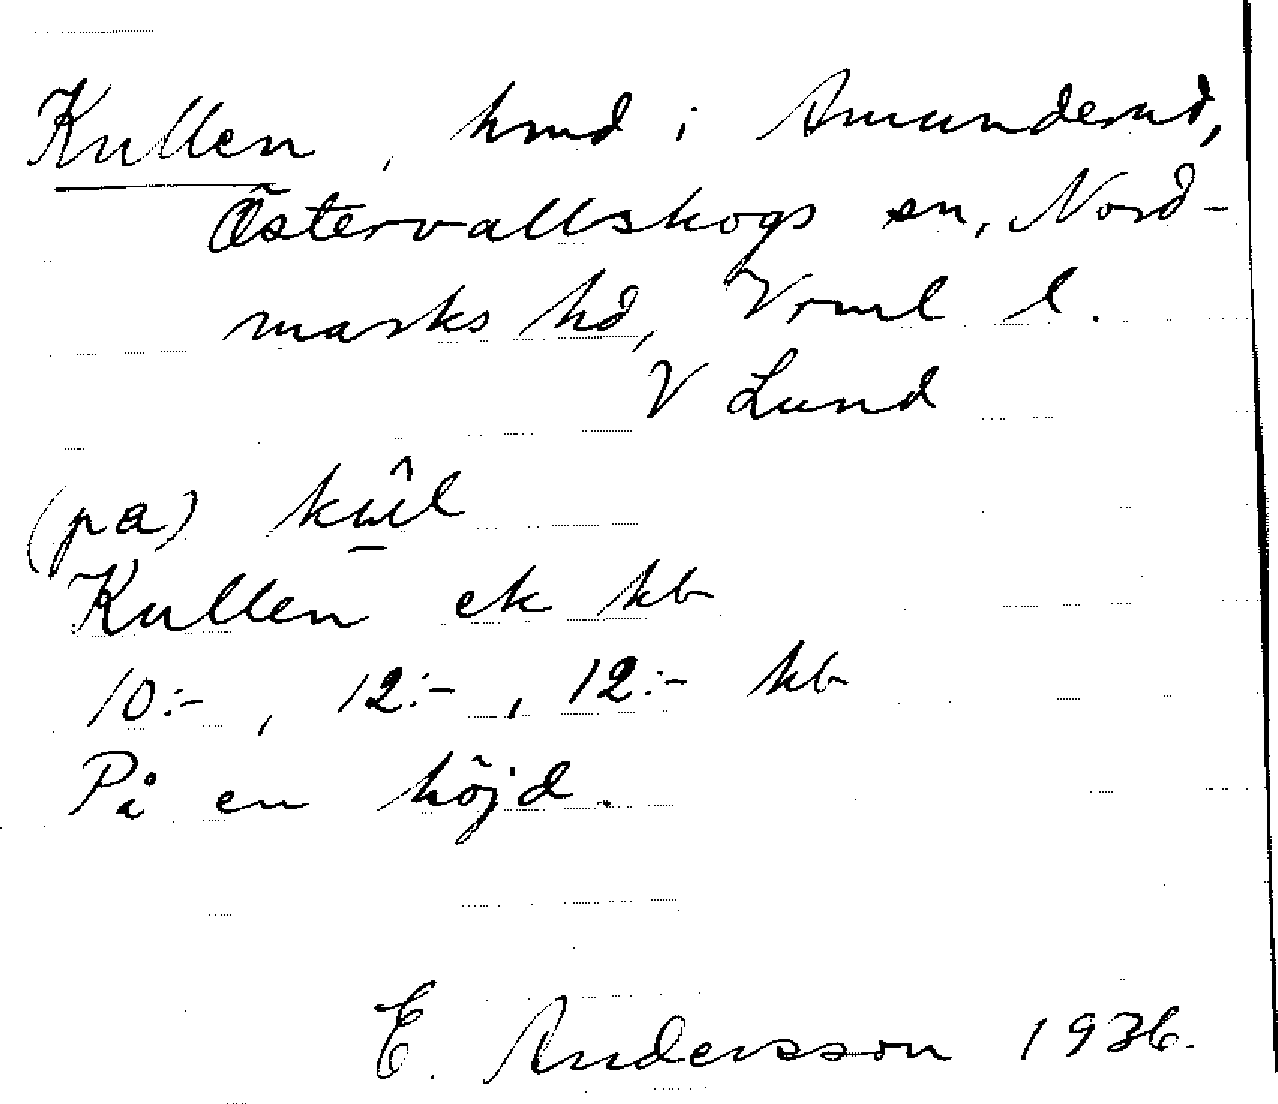 Kullen, hmd i Amunderud,
Östervallskogs sn, Nord-
marks hd, Vrml l.
V Lund
(pa) kul̂
Kullen ek kb
10:-, 12:-, 12:- kb
På en höjd.
E. Andersson 1936.